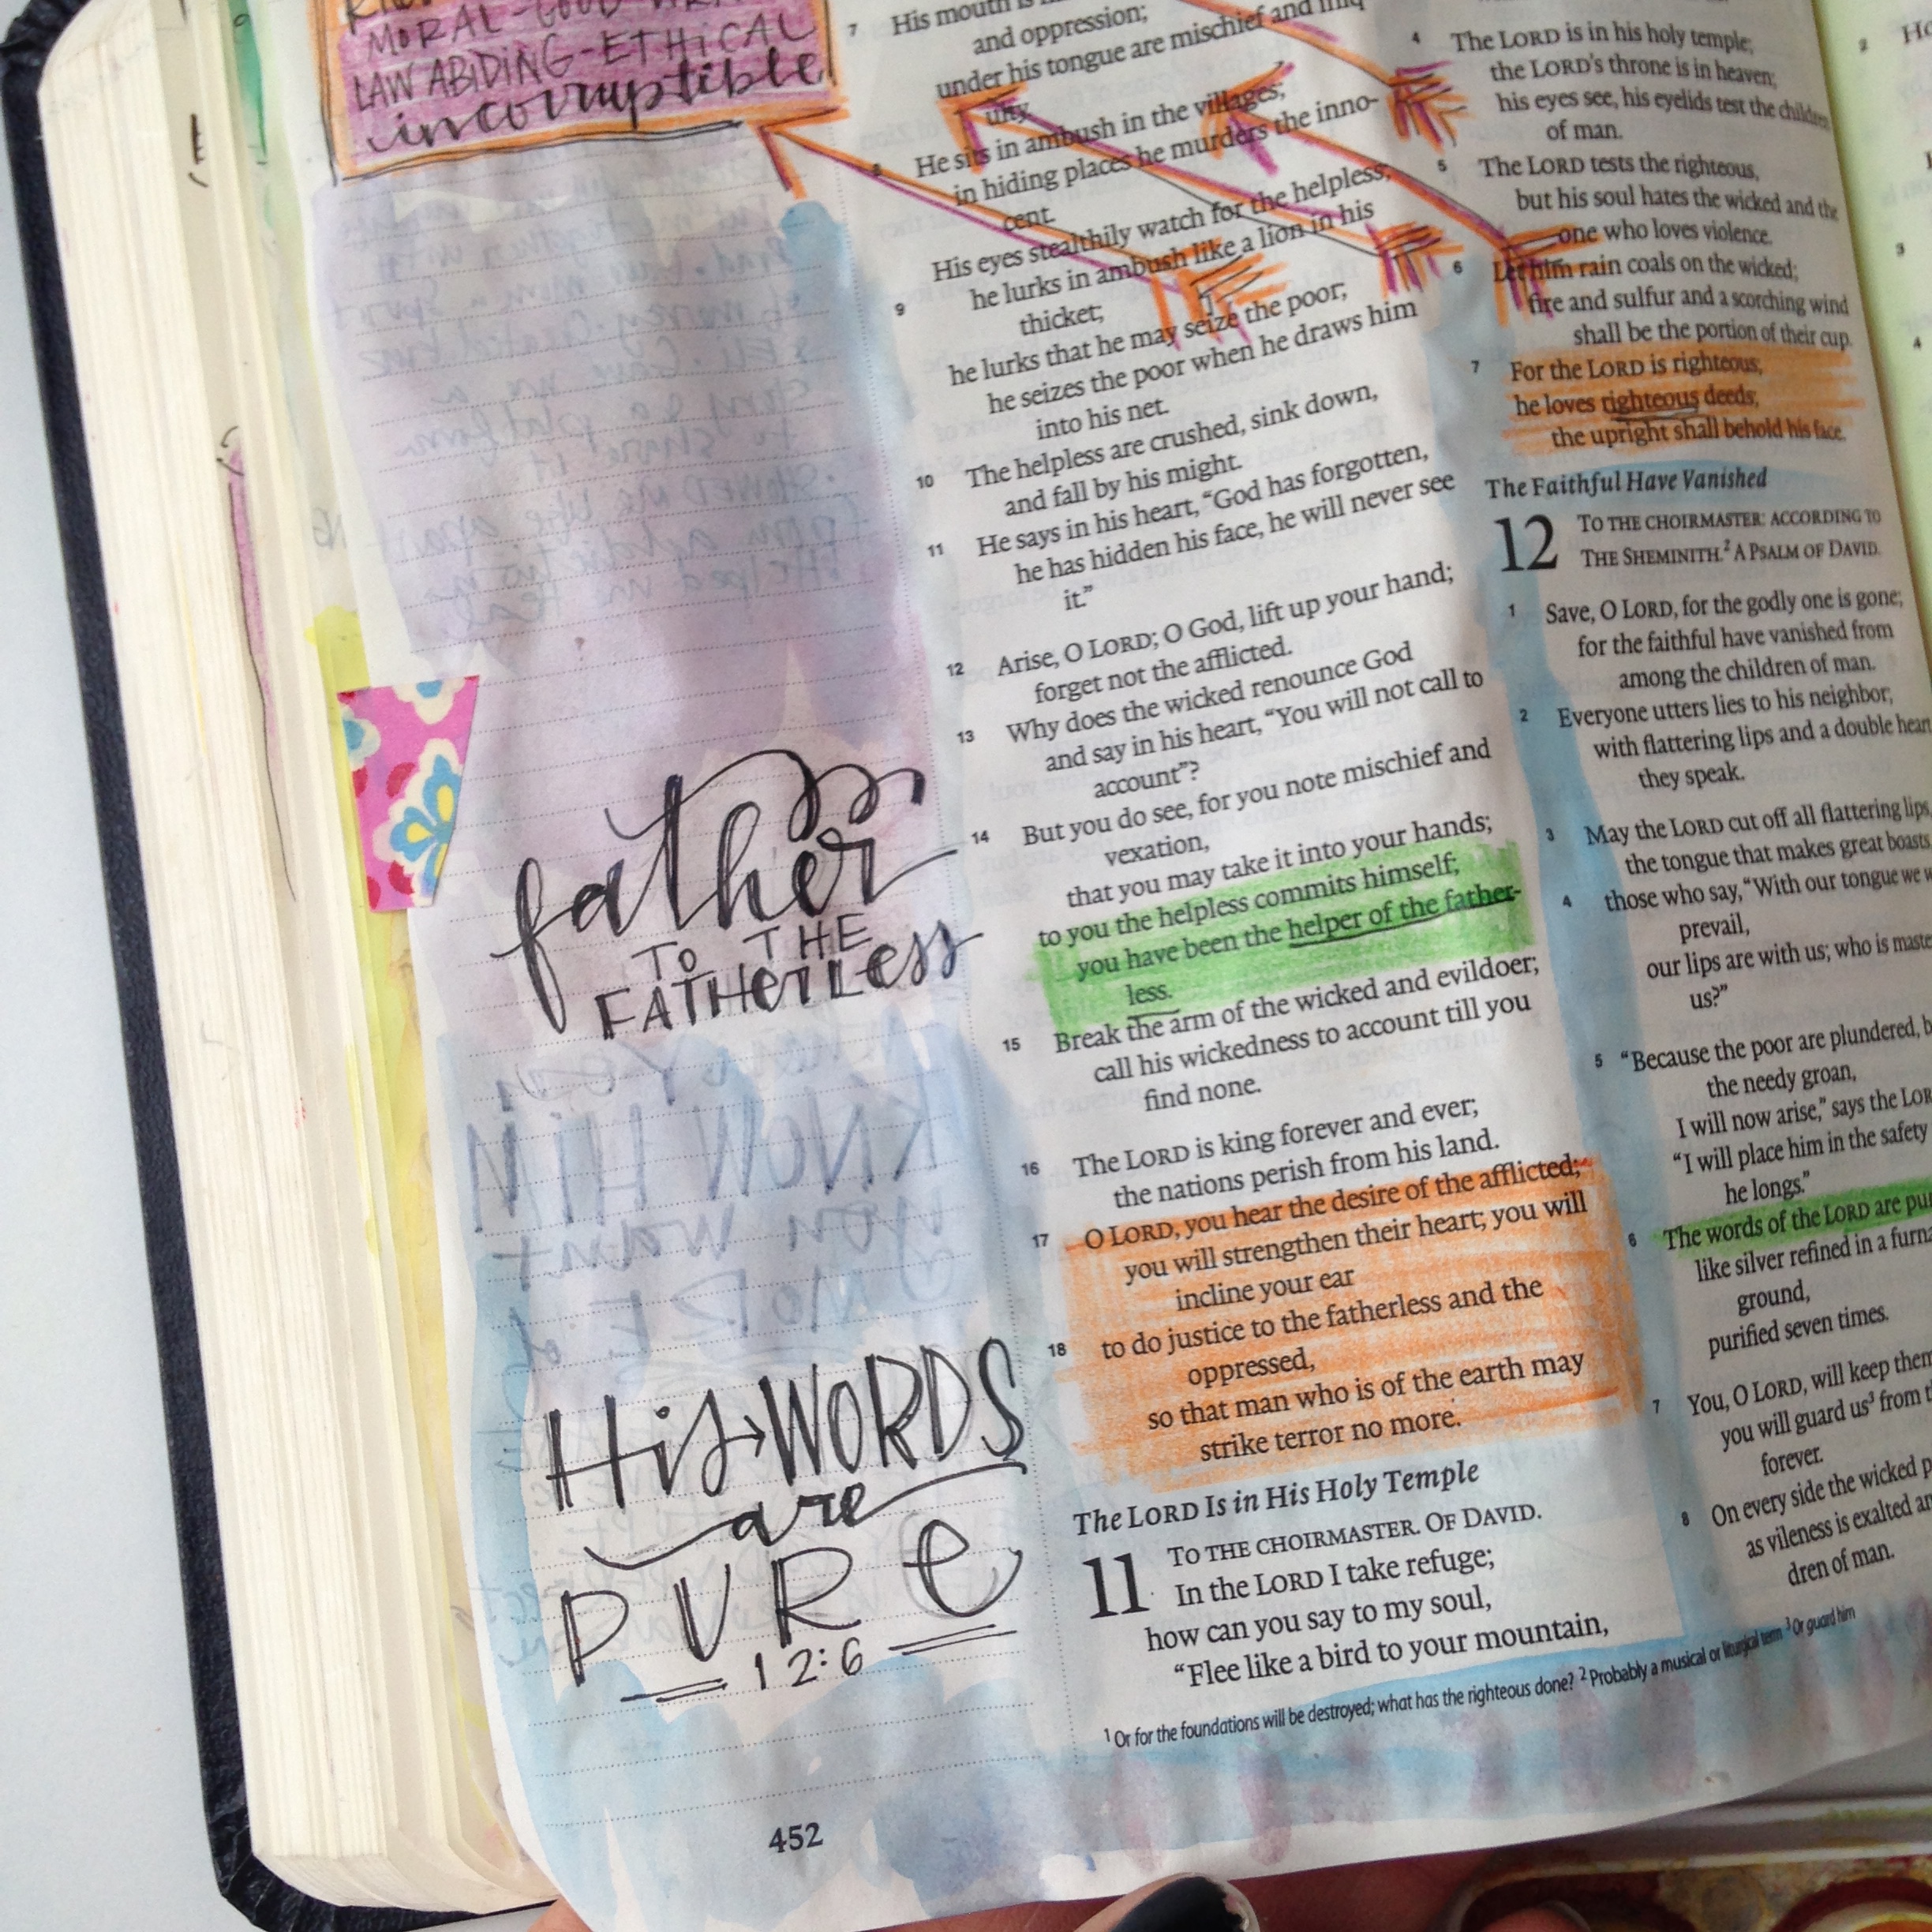 MORAL-GOOD
LAW ABIDING-ETHICAL
incorruptible
father
TO THE
FATHERLESS
His→WORDS
are
PURE
12:6
452
7 His mouth is
and oppression;
under his tongue are mischief and iniq
uity.
8 He sits in ambush in the villages;
in hiding places he murders the inno-
cent.
His eyes stealthily watch for the helpless;
9 he lurks in ambush like a lion in his
thicket;
he lurks that he may seize the poor;
he seizes the poor when he draws him
into his net.
10 The helpless are crushed, sink down,
and fall by his might.
11 He says in his heart, “God has forgotten,
he has hidden his face, he will never see
it.”
12 Arise, O LORD; O God, lift up your hand;
forget not the afflicted.
13 Why does the wicked renounce God
and say in his heart, “You will not call to
account”?
14 But you do see, for you note mischief and
vexation,
that you may take it into your hands;
to you the helpless commits himself;
you have been the helper of the father-
less.
15 Break the arm of the wicked and evildoer;
call his wickedness to account till you
find none.
16 The LORD is king forever and ever;
the nations perish from his land.
17 O LORD, you hear the desire of the afflicted;
you will strengthen their heart; you will
incline your ear
18 to do justice to the fatherless and the
oppressed,
so that man who is of the earth may
strike terror no more.
The LORD Is in His Holy Temple
11 TO THE CHOIRMASTER. OF DAVID.
In the LORD I take refuge;
how can you say to my soul,
“Flee like a bird to your mountain,
4 The LORD is in his holy temple;
the LORD’s throne is in heaven;
his eyes see, his eyelids test the children
of man.
5 The LORD tests the righteous,
but his soul hates the wicked and the
one who loves violence.
6 Let him rain coals on the wicked;
fire and sulfur and a scorching wind
shall be the portion of their cup.
7 For the LORD is righteous;
he loves righteous deeds;
the upright shall behold his face.
The Faithful Have Vanished
12 TO THE CHOIRMASTER: ACCORDING TO
THE SHEMINITH.² A PSALM OF DAVID.
1 Save, O LORD, for the godly one is gone;
for the faithful have vanished from
among the children of man.
2 Everyone utters lies to his neighbor;
with flattering lips and a double heart
they speak.
3 May the LORD cut off all flattering lips,
the tongue that makes great boasts,
4 those who say, “With our tongue we w
prevail,
our lips are with us; who is maste
us?”
5 “Because the poor are plundered, b
the needy groan,
I will now arise,” says the LOR
“I will place him in the safety
he longs.”
6 The words of the LORD are pur
like silver refined in a furna
ground,
purified seven times.
7 You, O LORD, will keep them
you will guard us³ from t
forever.
8 On every side the wicked p
as vileness is exalted am
dren of man.
¹ Or for the foundations will be destroyed; what has the righteous done? ² Probably a musical or liturgical term ³ Or guard him